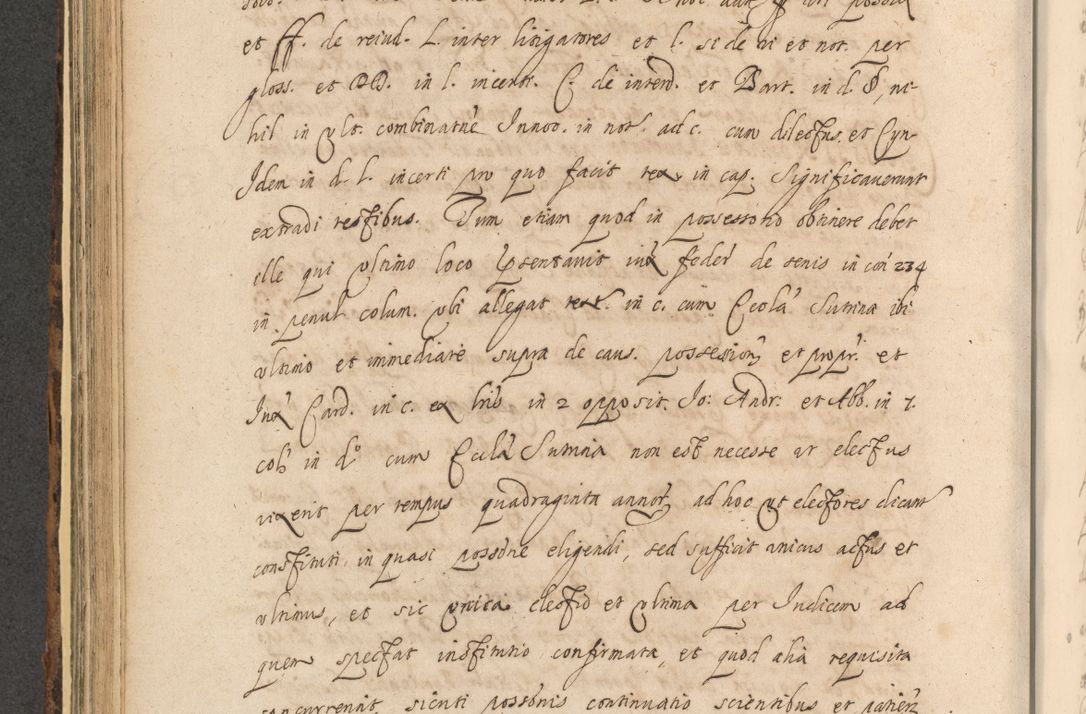 et ff. de reiud. L. inter litigatores et l. si de vi et not. per
gloss. et DD. in l. incerti. C. de interd. et Bart. in d. §, ni-
hil in ult. combinatne Innoc. in not. ad c. cum dilectus. et Cyn.
Idem in d. l. incerti pro quo facit tex. in cap. Significaverunt
extra di testibus. Tum etiam quod in possessorio obtinere debet
ille qui ultimo loco presentavit iux feder de senis in con 234
in penul colum. ubi allegat text. in c. cum Eccla Sutrina ibi
ultimo et immediate supra de caus. possession et propr. et
Iux Card. in c. ex litis in 2 opposit. Jo: Andr. et Abb. in 7.
col. in d.º cum Eccla Sutrina non est necesse ut electus
vixerit per tempus quadraginta annor. ad hoc ut electores dicant
constituti in quasi possone eligendi, sed sufficit unicus actus et
ultimus, et sic unica electio et ultima per Iudicem ad
quem spectat institutio confirmata, et quod alia requisita
concurrerint, sicuti possonis continuatio scientibus et patien